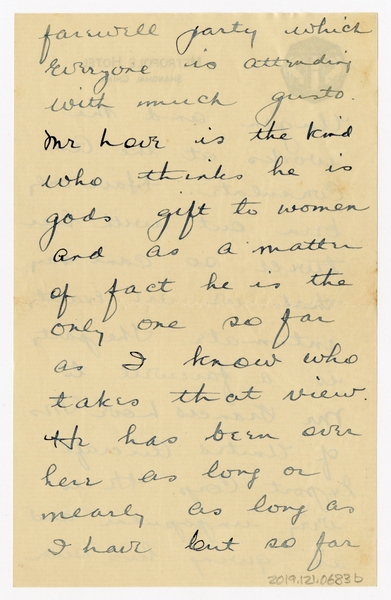 farewell party which
everyone is attending
with much gusto.
Mr Love is the kind
who thinks he is
gods gift to women
and as a matter
of fact he is the
only one so far
as I know who
takes that view.
He has been over
here as long or
nearly as long as
I have but so far
2019.121.0683b